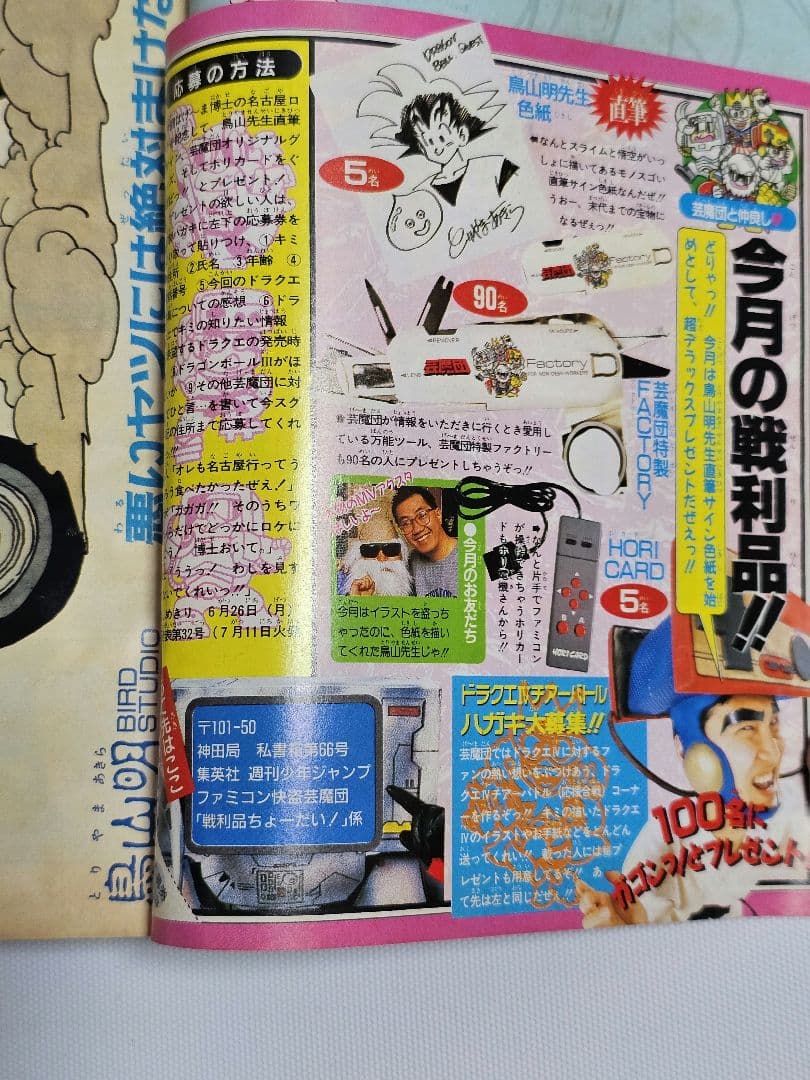 芸魔団と仲良し
今月の戦利品!!
どりゃっ!! 今月は鳥山明先生直筆サイン色紙を始
めとして、超デラックスプレゼントだぜえっ!!
鳥山明先生
色紙
直筆
DRAGON
BALL QUEST
5名
なんとスライムと悟空がいっ
しょに描いてあるモノスゴい
直筆サイン色紙なんだぜ!!
うおー、末代までの宝物に
なるぜえっ!!
90名
Factory
REMOVER
芸魔団
Factory
芸魔団特製
FACTORY
芸魔団が情報をいただきに行くとき愛用し
ている万能ツール、芸魔団特製ファクトリー
も90名の人にプレゼントしちゃうぞっ!!
HORI
CARD
5名
なんと片手でファミコン
が操
きちゃうホリカー
ドも
さんから!!
B A
HORI CARD
●今月のお友だち
今月はイラストを盗っち
ゃったのに、色紙を描い
てくれた鳥山先生じゃ!!
応募の方法
ま博士の名古屋ロ
して、鳥山先生直筆
芸魔団オリジナルグ
そしてホリカードをぐ
とプレゼント!
プレゼントの欲しい人は、
ハガキに左下の応募券を
って貼りつけ、①キミ
所 ②氏名 ③年齢 ④
番号 ⑤今回のドラクエ
についての感想 ⑥ドラ
でキミの知りたい情報
するドラクエの発売時
ドラゴンボールⅢがほ
⑨その他芸魔団に対
ひと言 を書いて今スグ
の住所まで応募してくれ
「オレも名古屋行ってう
う食べたかったぜえ!」
「ガガガ!! そのうちワ
っだけでどっかにロケに
博士おいて。」
ううっ! わしを見す
いてくれいっ!!」
めきり 6月26日(月)
表第32号(7月11日火発
先はここ
〒101-50
神田局 私書箱第66号
集英社 週刊少年ジャンプ
ファミコン快盗芸魔団
「戦利品ちょーだい!」係
ドラクエⅣチアーバトル
ハガキ大募集!!
芸魔団ではドラクエⅣに対するフ
ァンの熱い想いをぶつけあう、ドラ
クエⅣチアーバトル(応援合戦)コーナ
ーを作るぞっ!! キミの描いたドラクエ
Ⅳのイラストやお手紙などをどんどん
送ってくれい!! 載った人には超プ
レゼントも用意してるぞ!! あ
て先は左と同じだぜえ!!
100名に
ガゴンッ!とプレゼント
悪いヤツには絶対まけな
鳥山明
とりやまあきら
BIRD
STUDIO